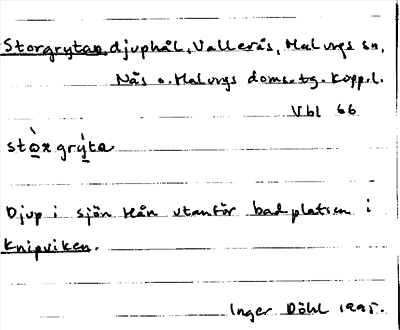 Storgrytan, djuphål, Vallerås, Malungs sn,
Nås o. Malungs doms.tg. Kopp.l.
Vbl 66
stòrgrýta
Djup i sjön Hån utanför badplatsen i
Knipviken.
Inger Döhl 1995.